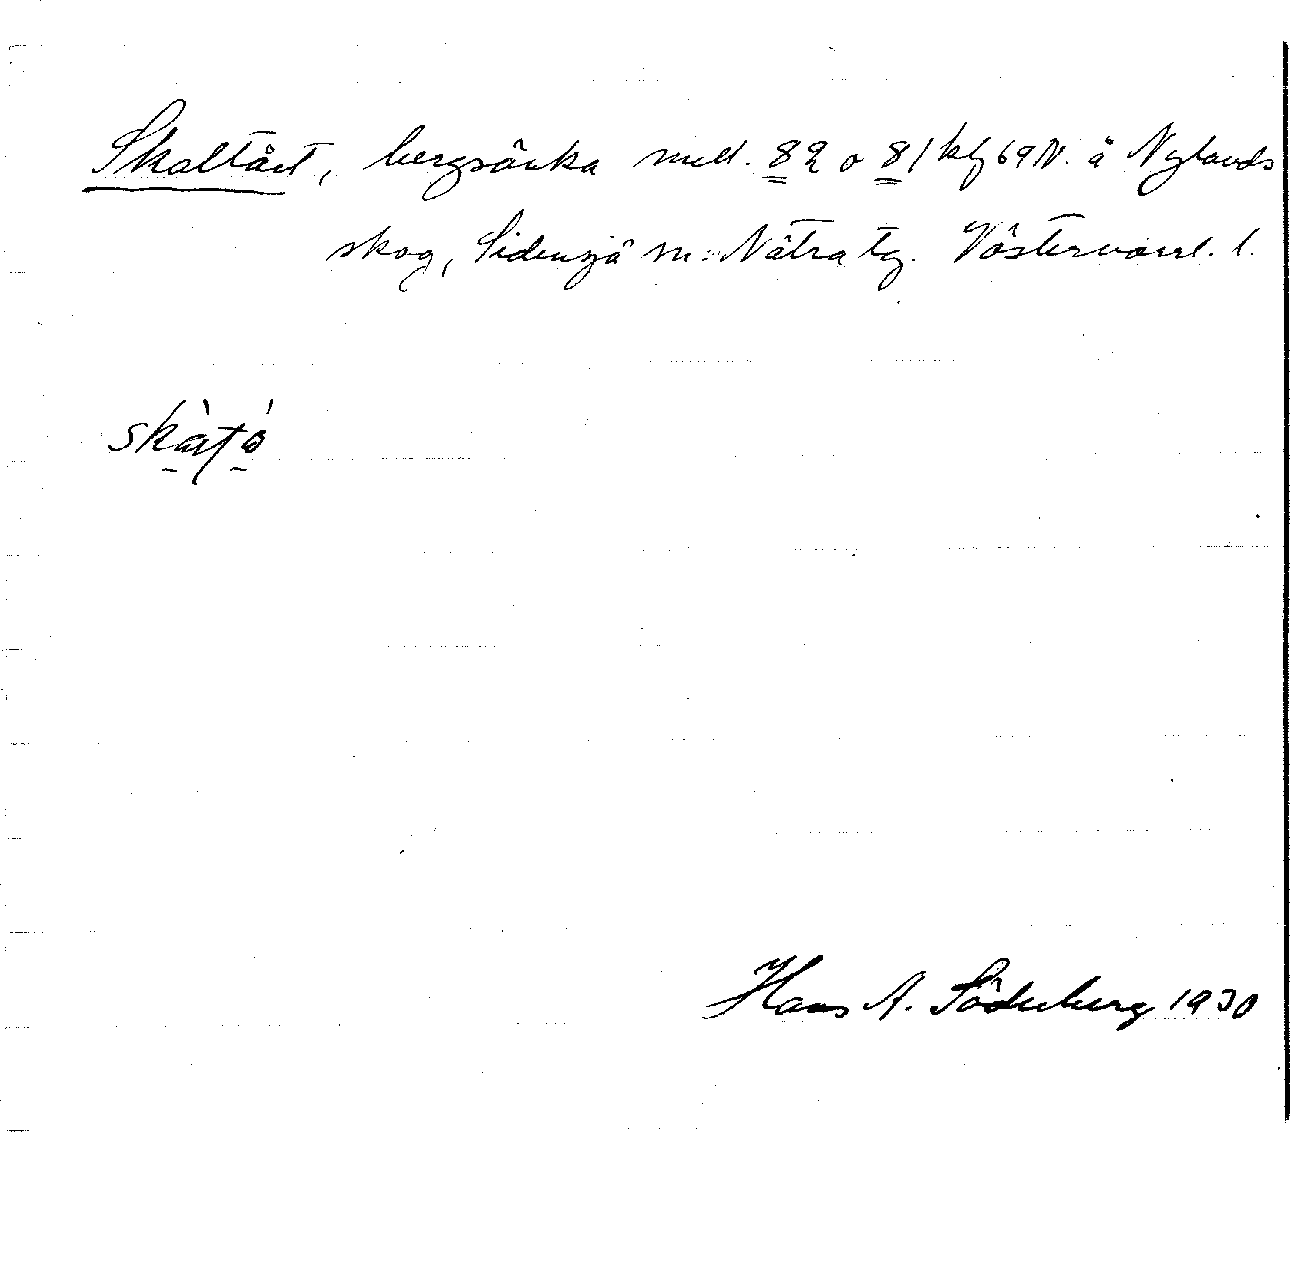 Skaltået, bergsänka mell. 82 o 81 kl 69 N. å Nylands
skog, Sidensjö sn. Nätra tg. Västernorrl. l.
skàtó
Hans A. Söderberg 1930